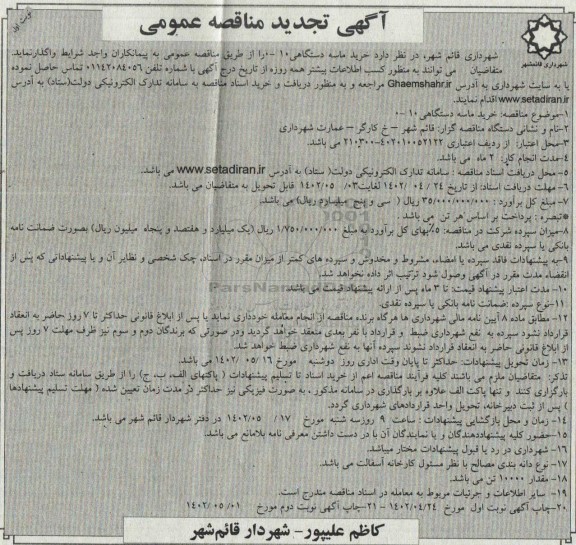 نوبت اول
آگهی تجدید مناقصه عمومی
شهرداری قائمشهر
شهرداری قائم شهر، در نظر دارد خرید ماسه دستگاهی ۱۰-۰ را از طریق مناقصه عمومی به پیمانکاران واجد شرایط واگذارنماید.
متقاضیان می توانند به منظور کسب اطلاعات بیشتر همه روزه از تاریخ درج آگهی با شماره تلفن ۰۱۱۴۲۰۸۴۰۵۶ تماس حاصل نموده
یا به سایت شهرداری به آدرس Ghaemshahr.ir مراجعه و به منظور دریافت و خرید اسناد مناقصه به سامانه تدارک الکترونیکی دولت(ستاد) به آدرس
www.setadiran.ir اقدام نمایند.
۱-موضوع مناقصه: خرید ماسه دستگاهی ۱۰-۰
۲-نام و نشانی دستگاه مناقصه گزار: قائم شهر – خ کارگر – عمارت شهرداری
۳-محل اعتبار: از ردیف اعتباری ۴۰۲۰۱۰۰۵۲۱۲۲-۲۱۰۳۰۰ می باشد.
۴-مدت انجام کار: ۲ ماه می باشد.
۵- محل دریافت اسناد مناقصه : سامانه تدارک الکترونیکی دولت( ستاد) به آدرس www.setadiran.ir می باشد.
۶- مهلت دریافت اسناد: از تاریخ ۲۴ /۰۴ /۱۴۰۲ لغایت ۰۳/ ۱۴۰۲/۰۵ قابل تحویل به متقاضیان می باشد.
۷- مبلغ کل برآورد : ۳۵/۰۰۰/۰۰۰/۰۰۰ ریال ( سی و پنج میلیارد ریال) می باشد.
*تبصره : پرداخت بر اساس هر تن می باشد .
۸-میزان سپرده شرکت در مناقصه: ۵٪بهای کل برآورد به مبلغ ۱/۷۵۰/۰۰۰/۰۰۰ ریال (یک میلیارد و هفتصد و پنجاه میلیون ریال) بصورت ضمانت نامه
بانکی یا سپرده نقدی می باشد.
۹-به پیشنهادات فاقد سپرده یا امضاء، مشروط و مخدوش و سپرده های کمتر از میزان مقرر در اسناد، چک شخصی و نظایر آن و یا پیشنهاداتی که پس از
انقضاء مدت مقرر در آگهی وصول شود ترتیب اثر داده نخواهد شد.
۱۰-مدت اعتبار پیشنهاد قیمت: تا ۳ ماه پس از ارائه پیشنهاد قیمت می باشد.
۱۱-نوع سپرده :ضمانت نامه بانکی یا سپرده نقدی.
۱۲-مطابق ماده ۸ آیین نامه مالی شهرداری ها هرگاه برنده مناقصه از انجام معامله خودداری نماید یا پس از ابلاغ قانونی حداکثر تا ۷ روز حاضر به انعقاد
قرارداد نشود سپرده به نفع شهرداری ضبط و قرارداد با نفر بعدی منعقد خواهد گردید ودر صورتی که برندگان دوم و سوم نیز ظرف مهلت ۷ روز پس
از ابلاغ قانونی حاضر به انعقاد قرارداد نشوند سپرده آنها به نفع شهرداری ضبط خواهد شد.
۱۳- زمان تحویل پیشنهادات: حداکثر تا پایان وقت اداری روز دوشنبه مورخ ۱۶ /۰۵ /۱۴۰۲ می باشد.
تذکر: متقاضیان ملزم می باشند کلیه فرآیند مناقصه اعم از خرید اسناد تا تسلیم پیشنهادات ( پاکتهای الف، ب، ج) را از طریق سامانه ستاد دریافت و
بارگزاری کنند. و تنها پاکت الف علاوه بر بارگذاری در سامانه مذکور، به صورت فیزیکی نیز حداکثر در مدت زمان تعیین شده ( مهلت تسلیم پیشنهادها
) پس از ثبت دبیرخانه، تحویل واحد قراردادهای شهرداری گردد.
۱۴- زمان و محل بازگشایی پیشنهادات : ساعت ۹ روزسه شنبه مورخ ۱۷/ ۱۴۰۲/۰۵ در دفتر شهردار قائم شهر می باشد.
۱۵-حضور کلیه پیشنهاددهندگان و یا نمایندگان آن با در دست داشتن معرفی نامه بلامانع می باشد.
۱۶- شهرداری در رد یا قبول پیشنهادات مختار میباشد.
۱۷-نوع دانه بندی مصالح با نظر مسئول کارخانه آسفالت می باشد.
۱۸-مقدار ۱۰۰۰۰ تن می باشد.
۱۹- سایر اطلاعات و جزئیات مربوط به معامله در اسناد مناقصه مندرج است.
۲۰-چاپ آگهی نوبت اول مورخ ۱۴۰۲/۰۴/۲۴ – ۲۱-چاپ آگهی نوبت دوم مورخ ۰۱/ ۱۴۰۲/۰۵
کاظم علیپور- شهردار قائم‌شهر